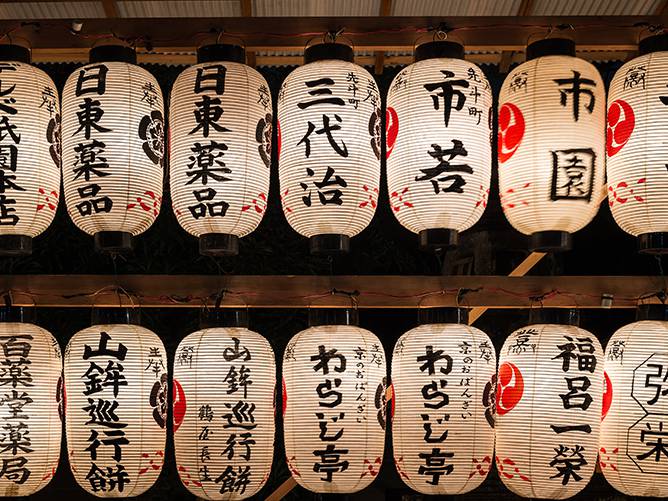 でん祇園本店
日東薬品
日東薬品
先斗町
三代治
先斗町
市若
市園
百薬堂薬局
山鉾巡行餅
山鉾巡行餅
鶴屋長生
わらじ亭
京のおばんざい
わらじ亭
京のおばんざい
福呂一栄
弥栄